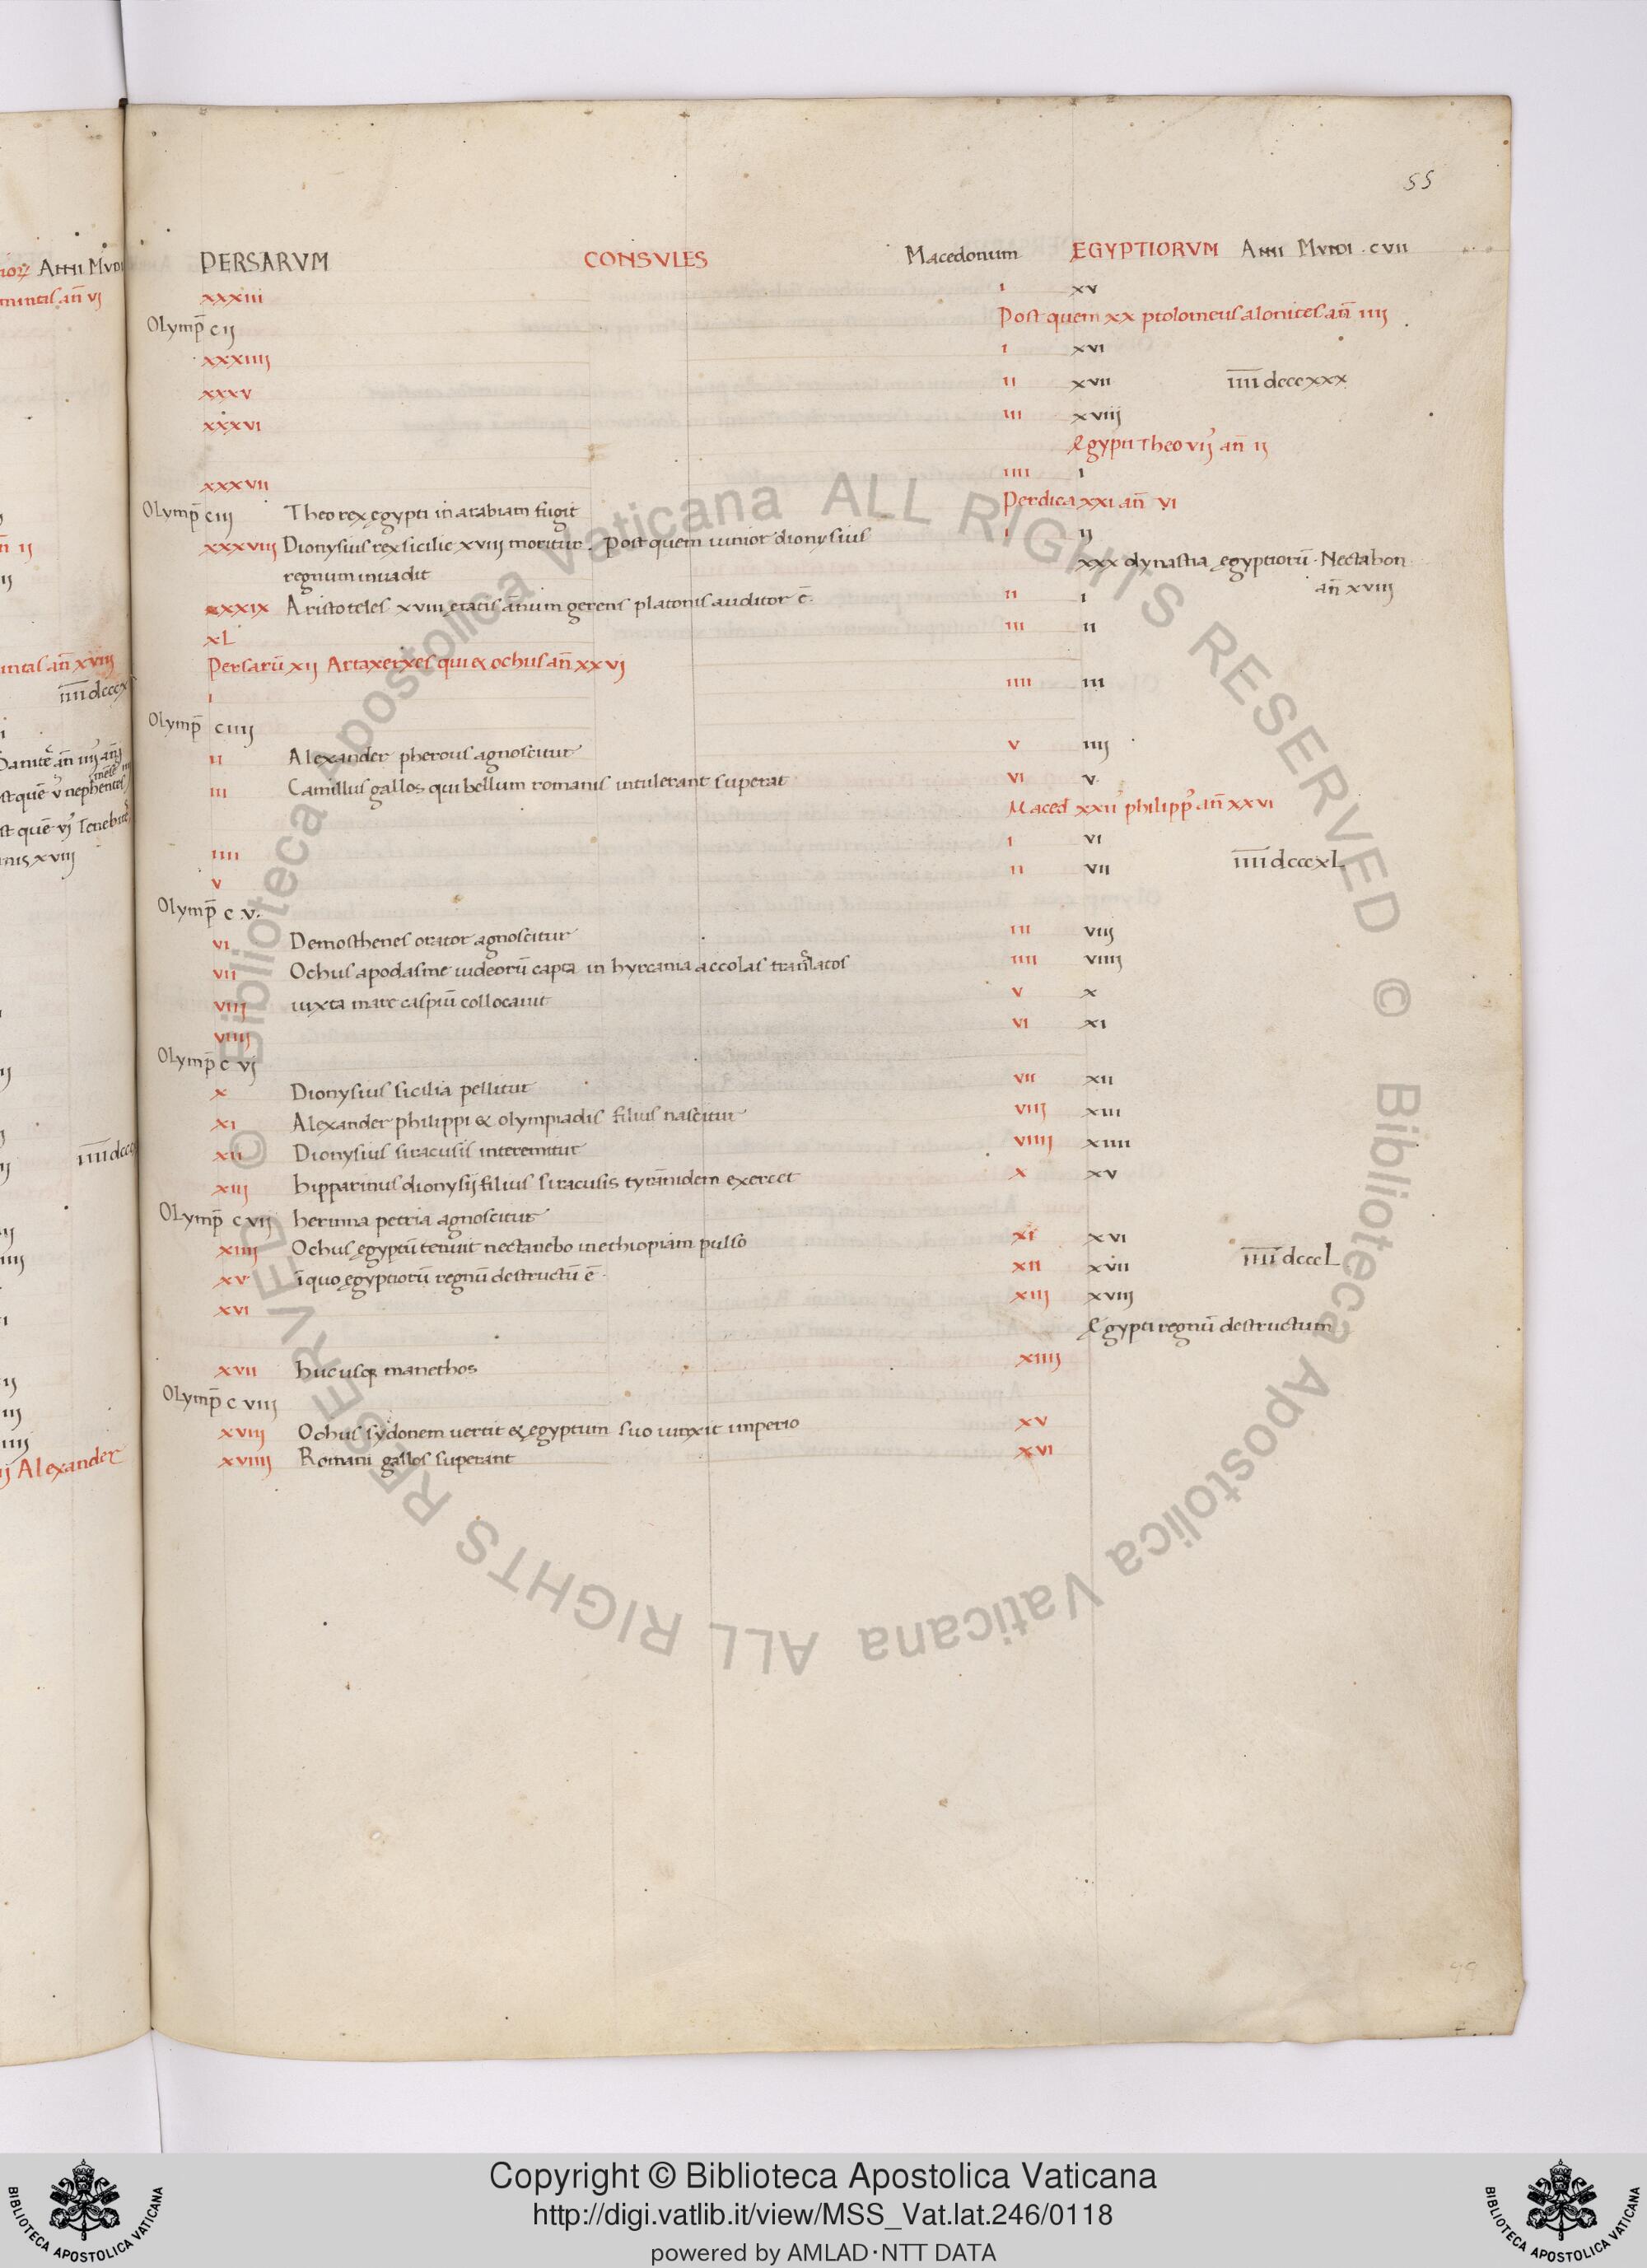 55
PERSARVM CONSVLES Macedonum EGYPTIORVM ANNI MVNDI . CVII
xxxiii i xv
Olymp̄ cij Post quem xx ptolomeus alonites an̄ iiij
xxxiiij i xvi
xxxv ii xvii iiii dcccxxx
xxxvi iii xviij
Egypti Theo vij an̄ ij
xxxvii iiii i
Olymp̄ ciij Theo rex ęgypti in arabiam fugit Perdica xxi an̄ vi
xxxviij Dionysius rex sicilię xviij moritur. Post quem iunior dionysius i ij
regnum inuadit xxx dynastia ęgyptiorū. Nectabon
an̄ xviij
xxxix Aristoteles xviij ętatis annum gerens platonis auditor ē. ii i
xL iii ii
Persarū xij Artaxerxes qui & ochus an̄ xxvj
i iiii iii
Olymp̄ ciiij
ii Alexander pherous agnoscitur v iiij
iii Camillus gallos qui bellum romanis intulerant superat vi v
Maced xxii philipp an̄ xxvi
iiii i vi
v ii vii iiii dcccxL
Olymp̄ c v.
vi Demosthenes orator agnoscitur iii viij
vii Ochus apodasme iudeorū capta in hyrcania accolas translatos iiii viiij
viij iuxta mare caspiū collocauit v x
viiij vi xi
Olymp̄ c vj
x Dionysius sicilia pellitur vii xii
xi Alexander philippi & olympiadis filius nascitur viij xiii
xii Dionysius siracusis interemitur viiij xiiii
xiij hipparinus dionysij filius siracusis tyrannidem exercet x xv
Olymp̄ c vij herinna petria agnoscitur
xiiij Ochus ęgyptū tenuit nectanebo in ethiopiam pulso xi xvi
xv ī quo ęgyptiorū regnū destructū ē xii xvii iiii dcccL
xvi xiij xviij
Egypti regnū destructum
xvii hucusq; manethos xiiij
Olymp̄ c viij
xviij Ochus sydonem uertit & ęgyptum suo iunxit imperio xv
xviiij Romani gallos superant xvi
Biblioteca Apostolica Vaticana ALL RIGHTS RESERVED ©
Biblioteca Apostolica Vaticana ALL RIGHTS RESERVED ©
BIBLIOTECA APOSTOLICA VATICANA
Copyright © Biblioteca Apostolica Vaticana
http://digi.vatlib.it/view/MSS_Vat.lat.246/0118
powered by AMLAD·NTT DATA
BIBLIOTECA APOSTOLICA VATICANA